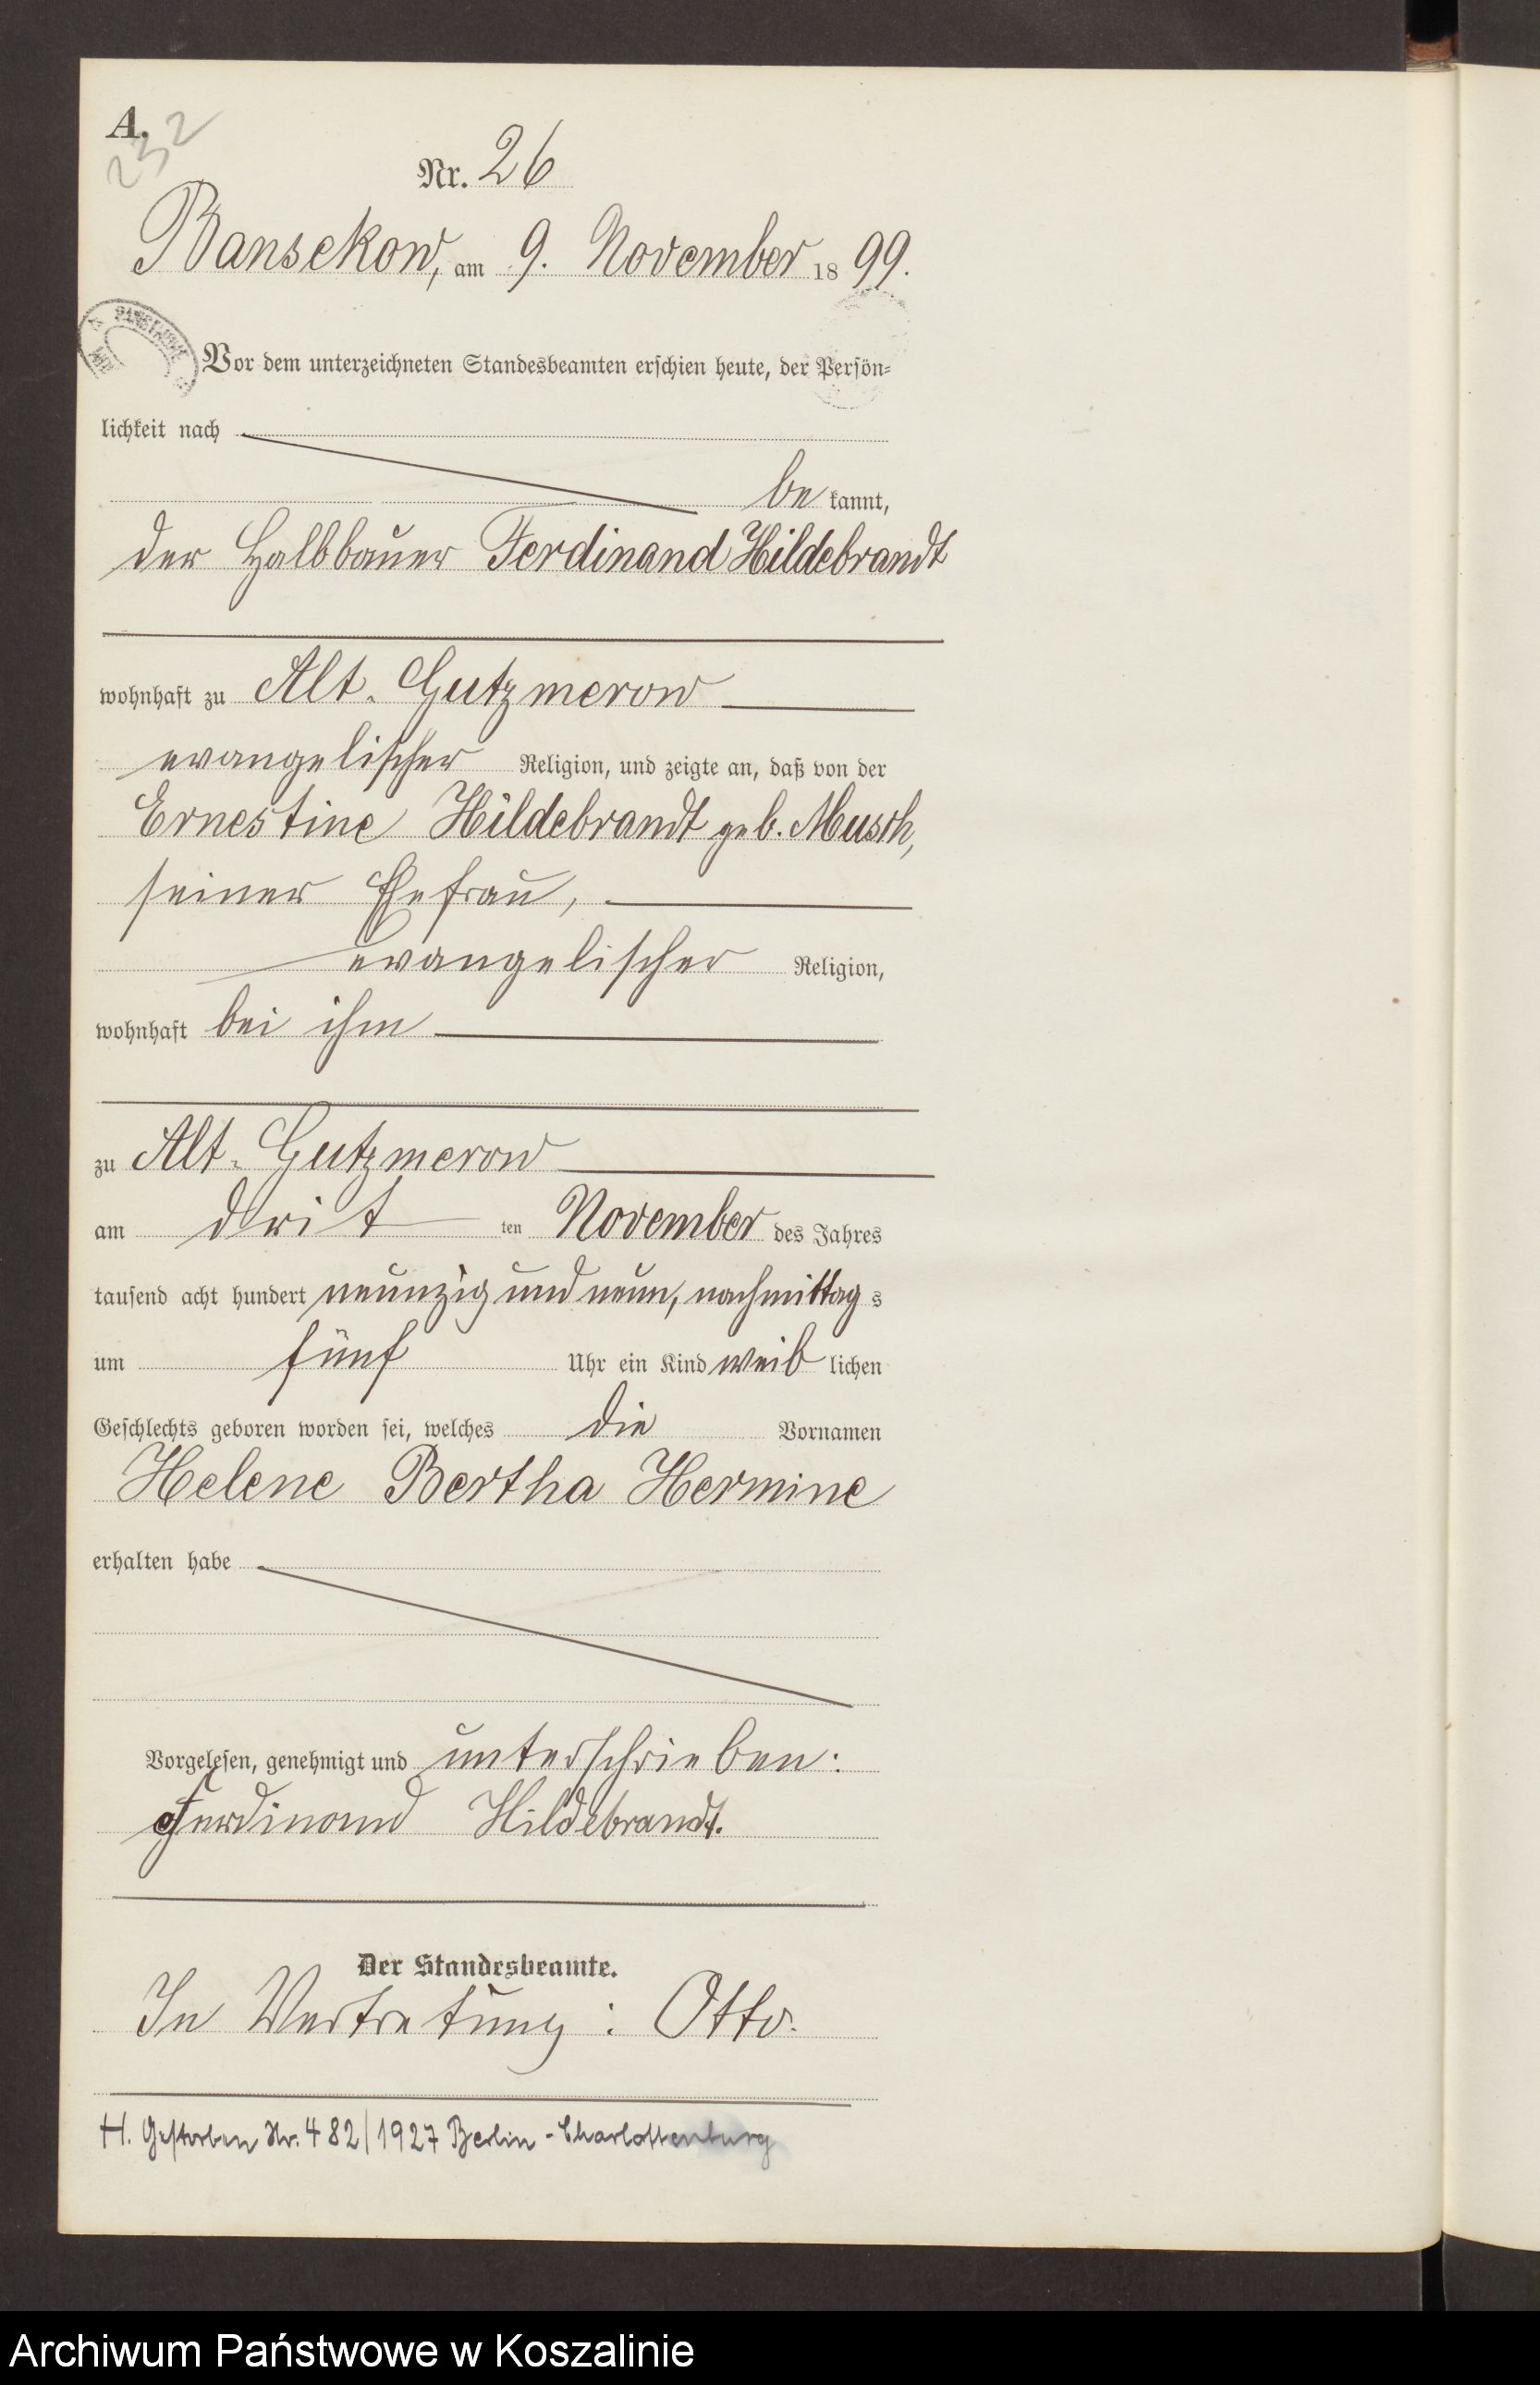 A.
232
Nr. 26
Bansekow, am 9. November 1899.
Vor dem unterzeichneten Standesbeamten erschien heute, der Persön-
lichkeit nach
be kannt,
der Halbbauer Ferdinand Hildebrandt
wohnhaft zu Alt-Gutzmerow
evangelischer Religion, und zeigte an, daß von der
Ernestine Hildebrandt geb. Musch,
seiner Ehefrau,
evangelischer Religion,
wohnhaft bei ihm
zu Alt-Gutzmerow
am dritten November des Jahres
tausend acht hundert neunzig und neun, nachmittags
um fünf Uhr ein Kind weiblichen
Geschlechts geboren worden sei, welches die Vornamen
Helene Bertha Hermine
erhalten habe
Vorgelesen, genehmigt und unterschrieben:
Ferdinand Hildebrandt.
Der Standesbeamte.
In Vertretung: Otto.
H. Gestorben Nr. 482/1927 Berlin-Charlottenburg
Archiwum Państwowe w Koszalinie